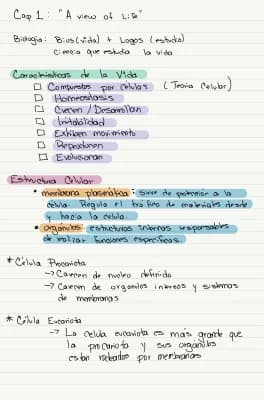 Cap 1: "A view of Life"
Biología: Bios (vida) + Logos (estudio)
ciencia que estudia la vida
Características de la Vida
Compuestos por células (Teoría Celular)
Homeostasis
Crecen / Desarrollan
Irritabilidad
Exhiben movimiento
Reproducen
Evolucionan
Estructura Celular
• membrana plasmática: sirve de protección a la
célula. Regula el tráfico de materiales desde
y hacia la celula.
• organulos: estructuras internas responsables
de realizar funciones específicas.
* Célula Procariota
→ Carecen de nucleo definido
→ Carecen de organulos internos y sistemas
de membranas
* Célula Eucariota
→ La celula eucariota es más grande que
la procariota y sus orgánulos
estan rodeados por membranas